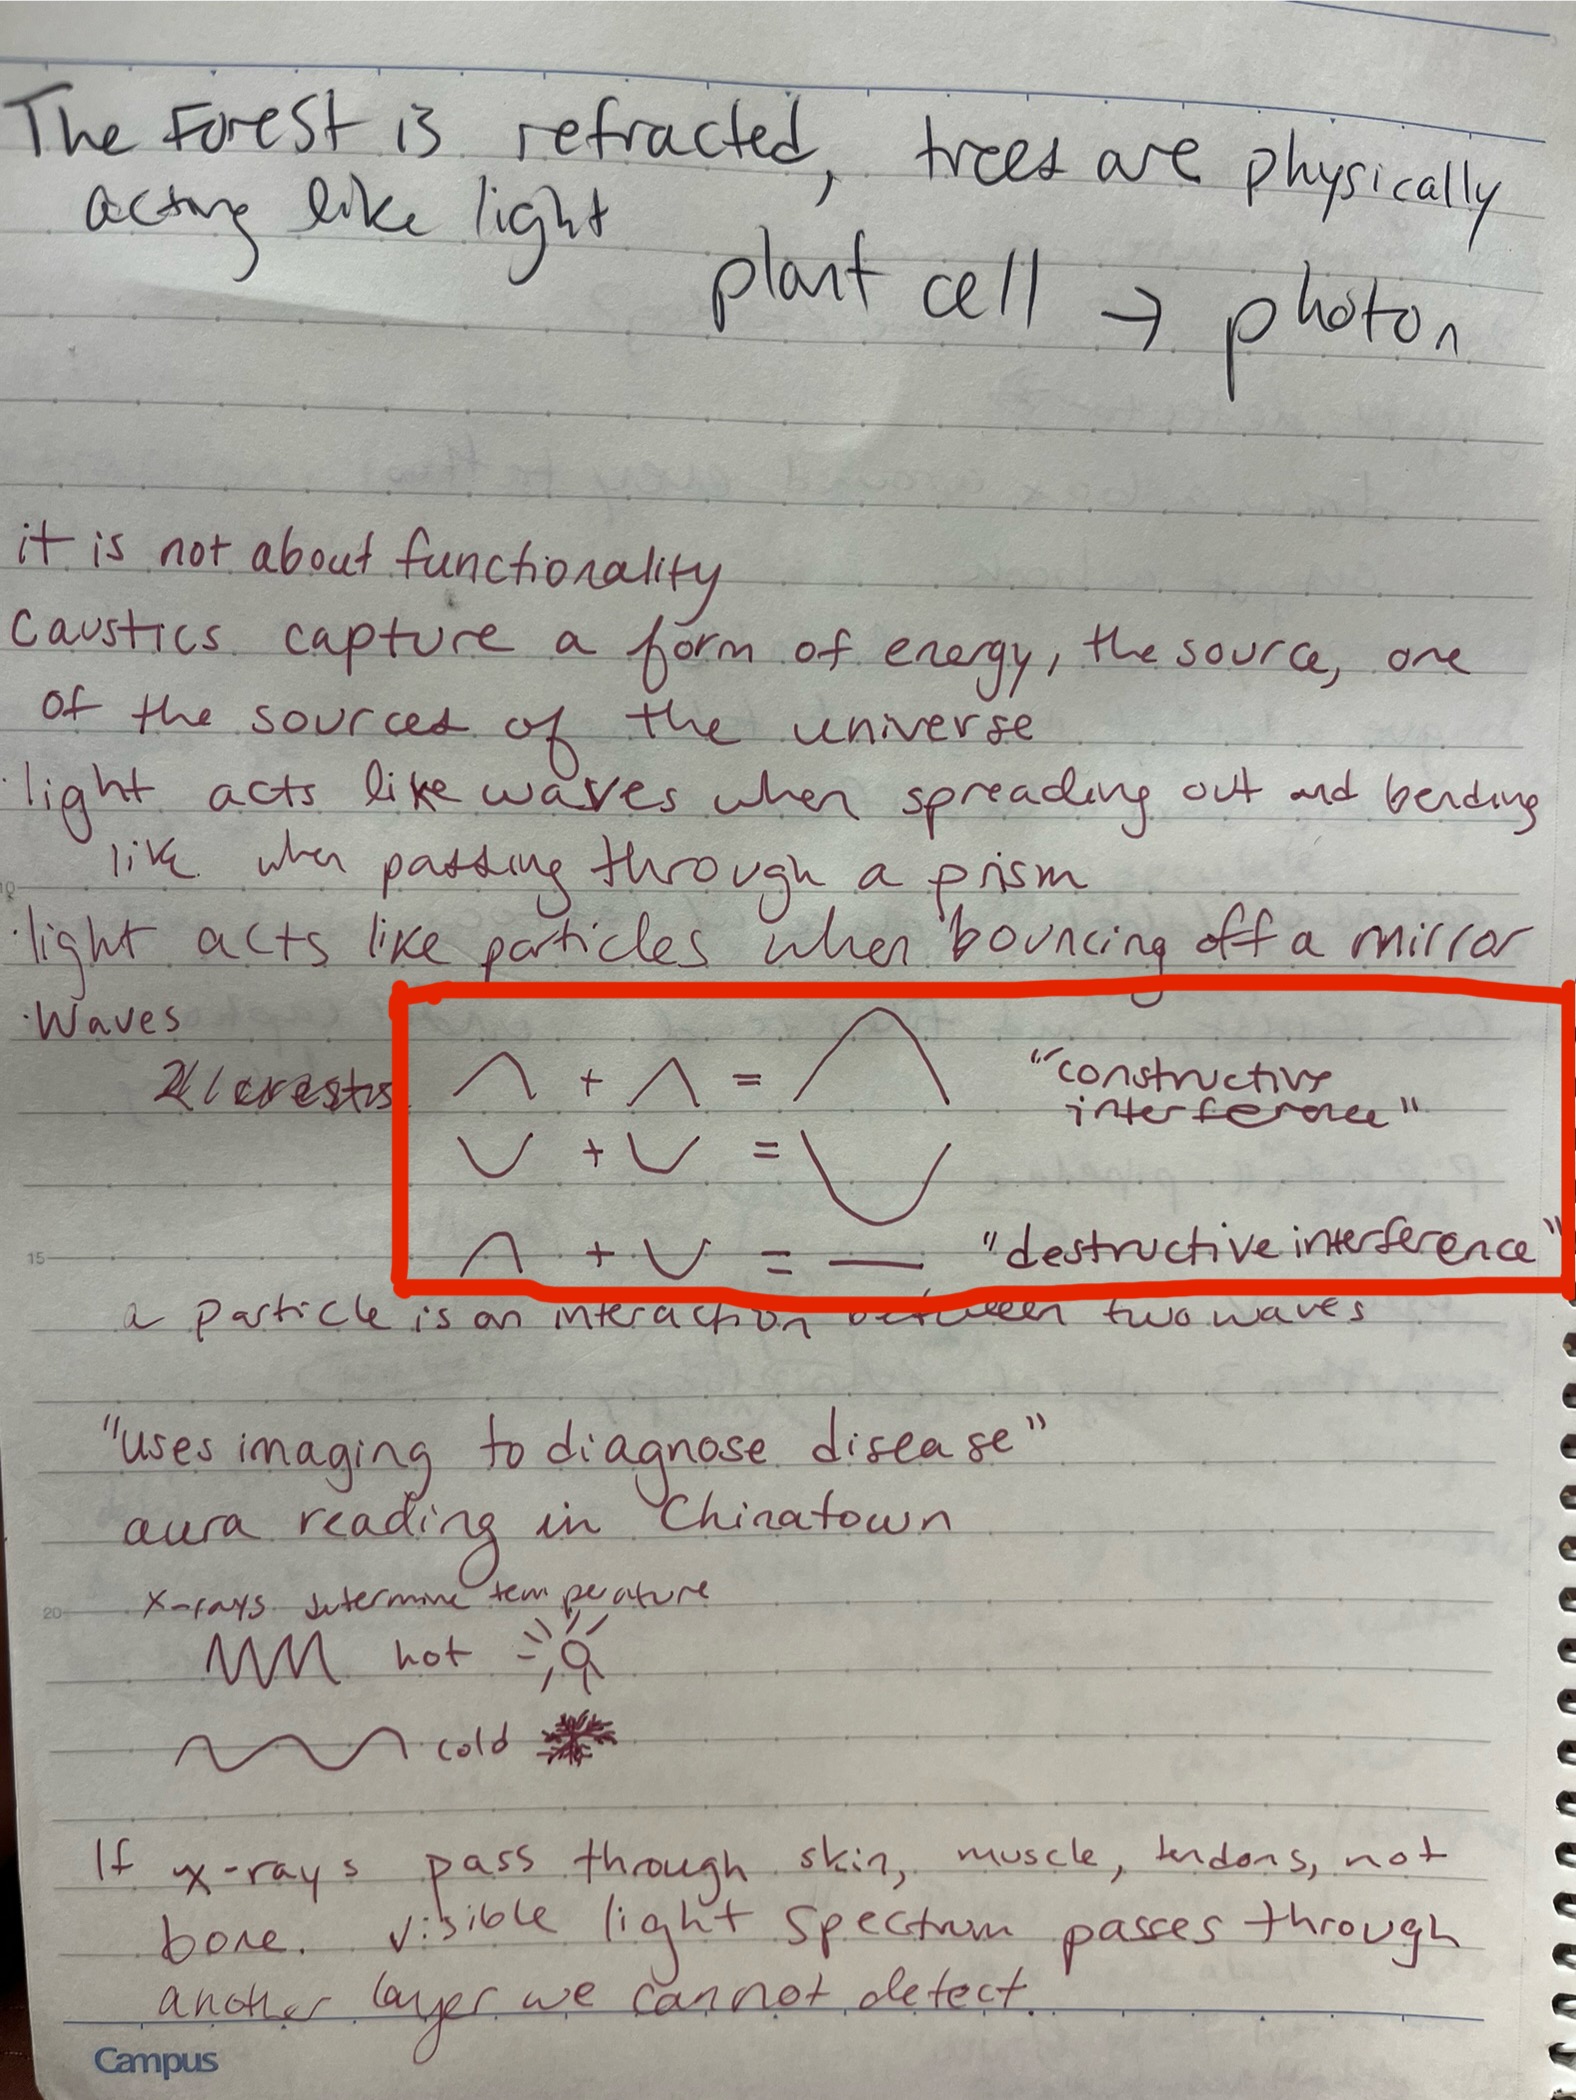 The Forest is refracted, trees are physically
acting like light
plant cell → photon
it is not about functionality
caustics capture a form of energy, the source, one
of the sources of the universe
· light acts like waves when spreading out and bending
like when passing through a prism
10
· light acts like particles when bouncing off a mirror
· Waves
+ = "constructive
interference"
+ =
15
+ = — "destructive interference"
a particle is an interaction between two waves
"uses imaging to diagnose disease"
aura reading in Chinatown
20
x-rays determine temperature
hot
cold
If x-rays pass through skin, muscle, tendons, not
bone. visible light spectrum passes through
another layer we cannot detect.
Campus